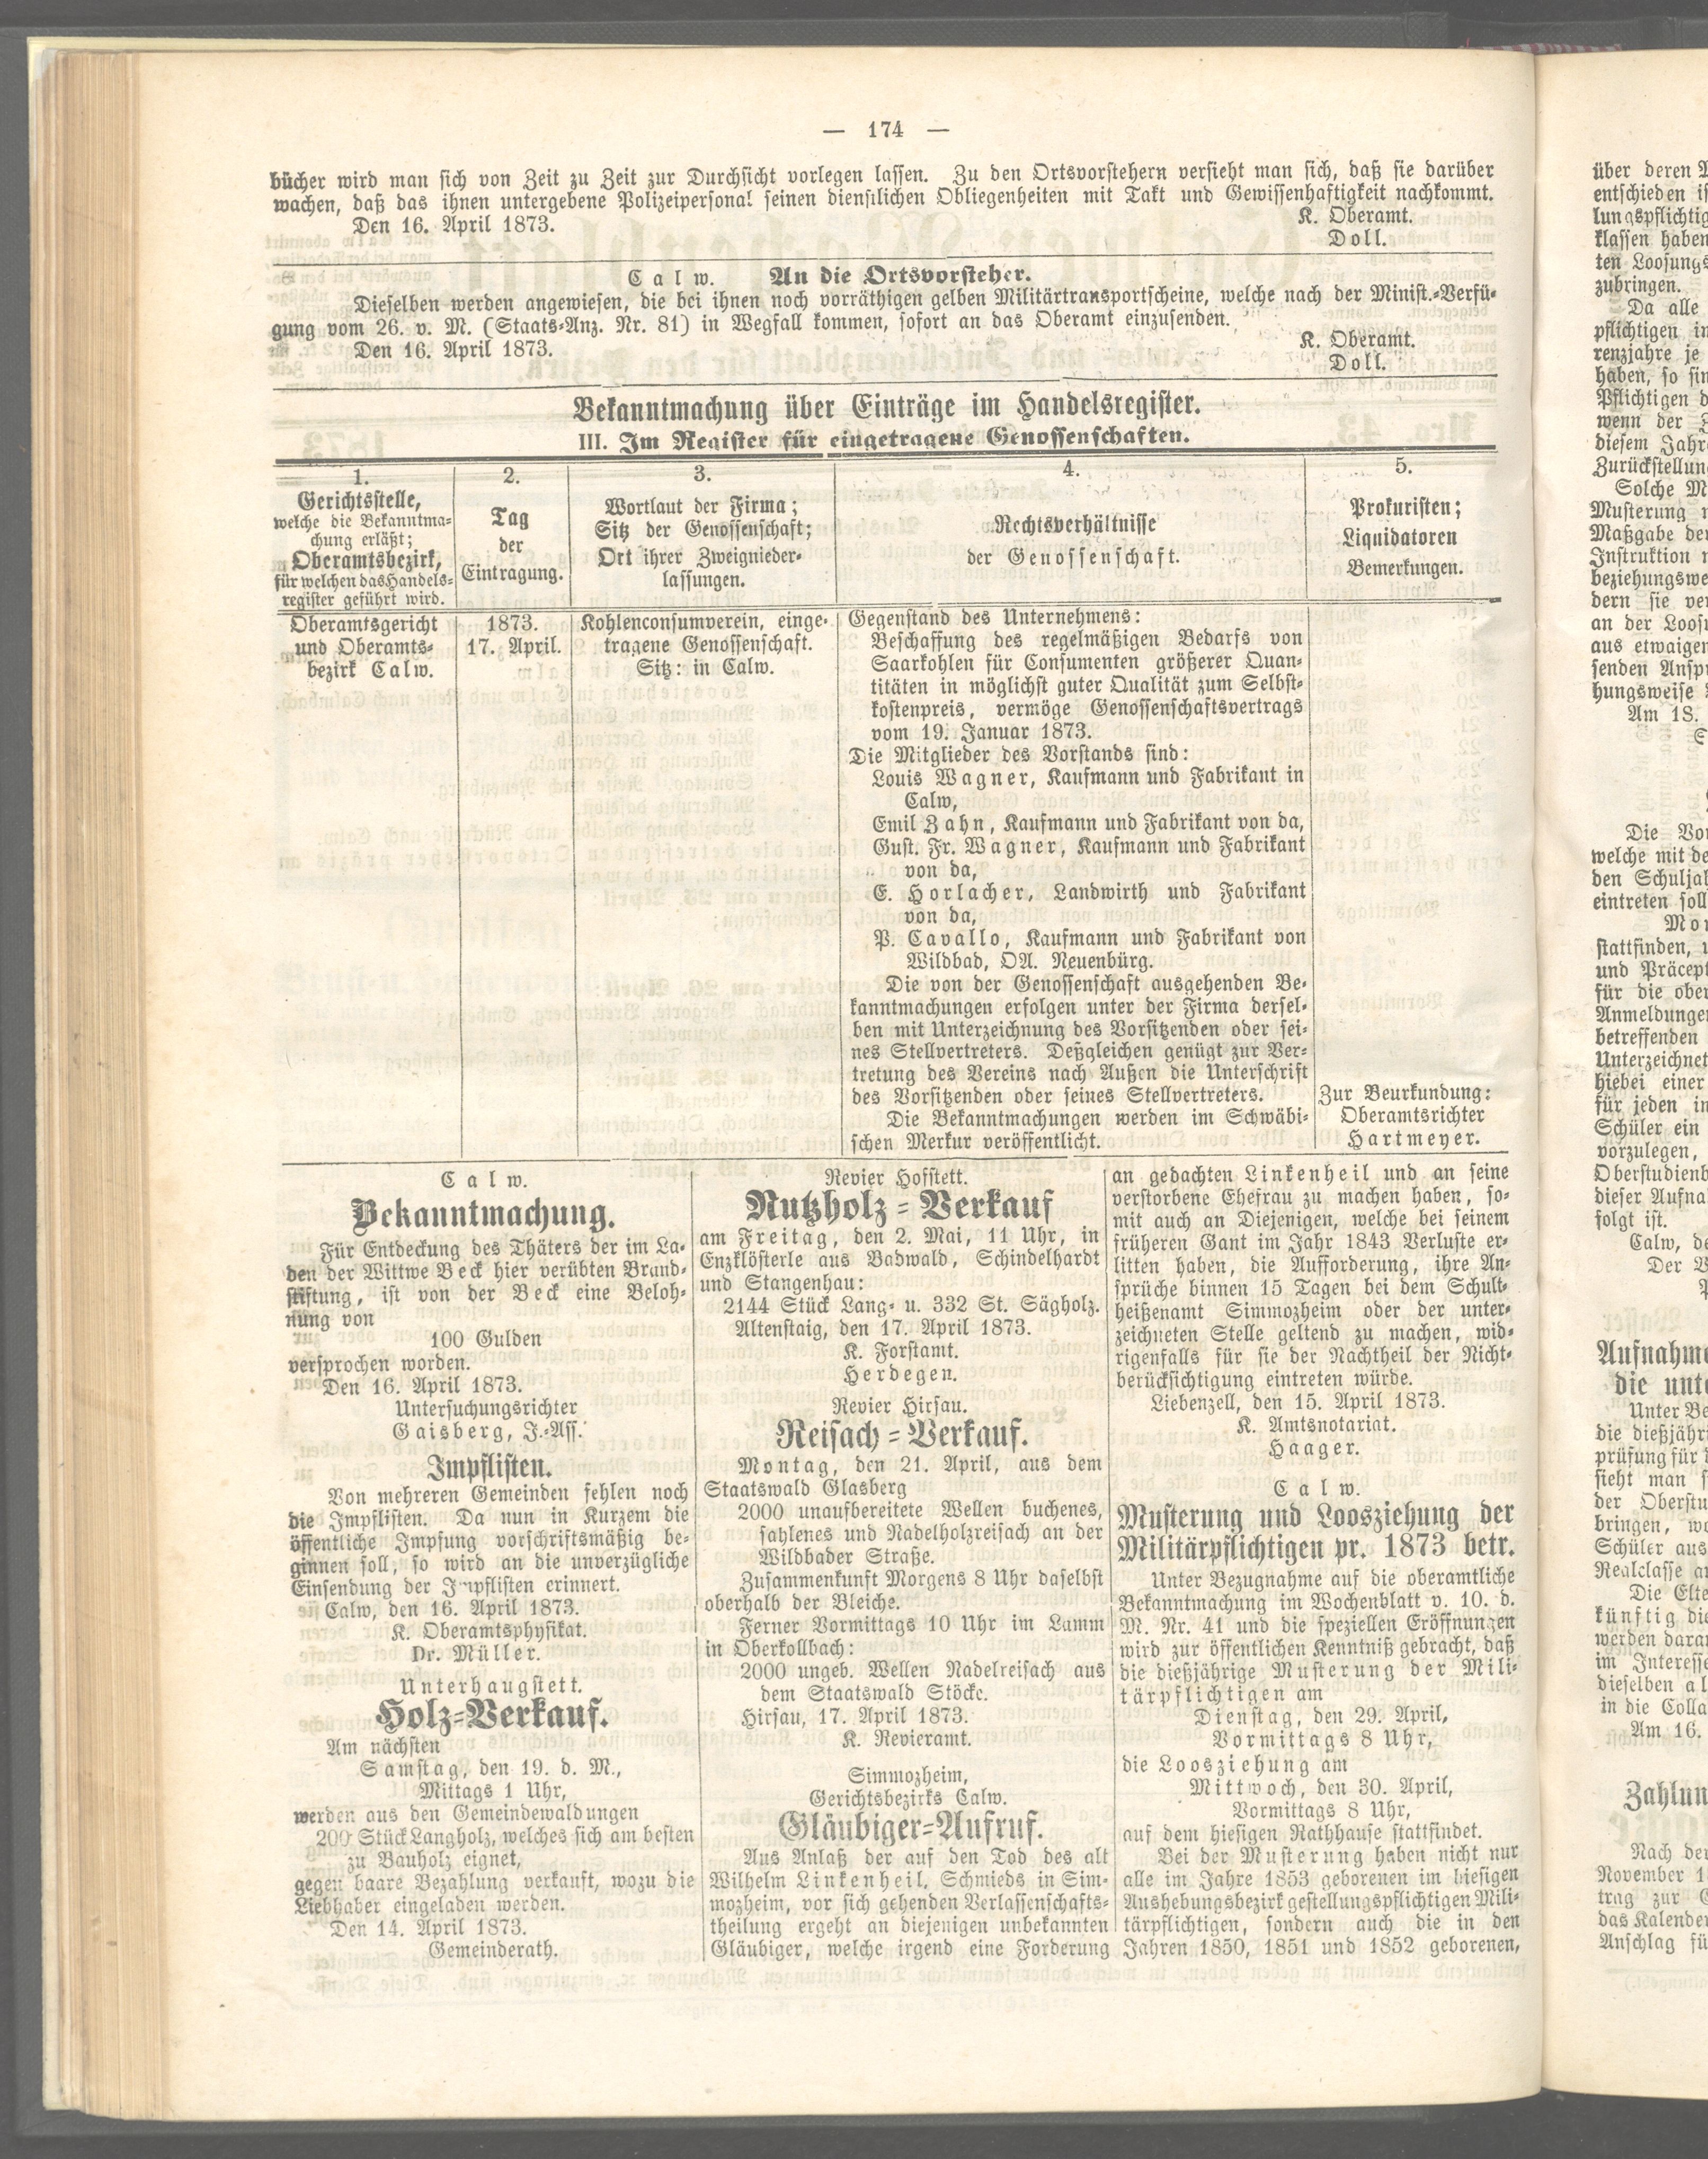 — 174 —
bücher wird man sich von Zeit zu Zeit zur Durchsicht vorlegen lassen. Zu den Ortsvorstehern versieht man sich, daß sie darüber
wachen, daß das ihnen untergebene Polizeipersonal seinen dienstlichen Obliegenheiten mit Takt und Gewissenhaftigkeit nachkommt.
Den 16. April 1873. K. Oberamt.
Doll.
Calw. An die Ortsvorsteher.
Dieselben werden angewiesen, die bei ihnen noch vorräthigen gelben Militärtransportscheine, welche nach der Minist.-Verfü-
gung vom 26. v. M. (Staats-Anz. Nr. 81) in Wegfall kommen, sofort an das Oberamt einzusenden.
Den 16. April 1873. K. Oberamt.
Doll.
Bekanntmachung über Einträge im Handelsregister.
III. Im Register für eingetragene Genossenschaften.
1.
Gerichtsstelle,
welche die Bekanntma-
chung erläßt;
Oberamtsbezirk,
für welchen das Handels-
register geführt wird.
2.
Tag
der
Eintragung.
3.
Wortlaut der Firma;
Sitz der Genossenschaft;
Ort ihrer Zweignieder-
lassungen.
4.
Rechtsverhältnisse
der Genossenschaft.
5.
Prokuristen;
Liquidatoren
Bemerkungen.
Oberamtsgericht
und Oberamts-
bezirk Calw.
1873.
17. April.
Kohlenconsumverein, einge-
tragene Genossenschaft.
Sitz: in Calw.
Gegenstand des Unternehmens:
Beschaffung des regelmäßigen Bedarfs von
Saarkohlen für Consumenten größerer Quan-
titäten in möglichst guter Qualität zum Selbst-
kostenpreis, vermöge Genossenschaftsvertrags
vom 19. Januar 1873.
Die Mitglieder des Vorstands sind:
Louis Wagner, Kaufmann und Fabrikant in
Calw,
Emil Zahn, Kaufmann und Fabrikant von da,
Gust. Fr. Wagner, Kaufmann und Fabrikant
von da,
E. Horlacher, Landwirth und Fabrikant
von da,
P. Cavallo, Kaufmann und Fabrikant von
Wildbad, OA. Neuenbürg.
Die von der Genossenschaft ausgehenden Be-
kanntmachungen erfolgen unter der Firma dersel-
ben mit Unterzeichnung des Vorsitzenden oder sei-
nes Stellvertreters. Deßgleichen genügt zur Ver-
tretung des Vereins nach Außen die Unterschrift
des Vorsitzenden oder seines Stellvertreters.
Die Bekanntmachungen werden im Schwäbi-
schen Merkur veröffentlicht.
Zur Beurkundung:
Oberamtsrichter
Hartmeyer.
Calw.
Bekanntmachung.
Für Entdeckung des Thäters der im La-
den der Wittwe Beck hier verübten Brand-
stiftung, ist von der Beck eine Beloh-
nung von
100 Gulden
versprochen worden.
Den 16. April 1873.
Untersuchungsrichter
Gaisberg, J.-Ass.
Impflisten.
Von mehreren Gemeinden fehlen noch
die Impflisten. Da nun in Kurzem die
öffentliche Impfung vorschriftsmäßig be-
ginnen soll, so wird an die unverzügliche
Einsendung der Impflisten erinnert.
Calw, den 16. April 1873.
K. Oberamtsphysikat.
Dr. Müller.
Unterhaugstett.
Holz-Verkauf.
Am nächsten
Samstag, den 19. d. M.,
Mittags 1 Uhr,
werden aus den Gemeindewaldungen
200 Stück Langholz, welches sich am besten
zu Bauholz eignet,
gegen baare Bezahlung verkauft, wozu die
Liebhaber eingeladen werden.
Den 14. April 1873.
Gemeinderath.
Revier Hofstett.
Nutzholz-Verkauf
am Freitag, den 2. Mai, 11 Uhr, in
Enzklösterle aus Badwald, Schindelhardt
und Stangenhau:
2144 Stück Lang- u. 332 St. Sägholz.
Altenstaig, den 17. April 1873.
K. Forstamt.
Herdegen.
Revier Hirsau.
Reisach-Verkauf.
Montag, den 21. April, aus dem
Staatswald Glasberg
2000 unaufbereitete Wellen buchenes,
sahlenes und Nadelholzreisach an der
Wildbader Straße.
Zusammenkunft Morgens 8 Uhr daselbst
oberhalb der Bleiche.
Ferner Vormittags 10 Uhr im Lamm
in Oberkollbach:
2000 ungeb. Wellen Nadelreisach aus
dem Staatswald Stöcke.
Hirsau, 17. April 1873.
K. Revieramt.
Simmozheim,
Gerichtsbezirks Calw.
Gläubiger-Aufruf.
Aus Anlaß der auf den Tod des alt
Wilhelm Linkenheil, Schmieds in Sim-
mozheim, vor sich gehenden Verlassenschafts-
theilung ergeht an diejenigen unbekannten
Gläubiger, welche irgend eine Forderung
an gedachten Linkenheil und an seine
verstorbene Ehefrau zu machen haben, so-
mit auch an Diejenigen, welche bei seinem
früheren Gant im Jahr 1843 Verluste er-
litten haben, die Aufforderung, ihre An-
sprüche binnen 15 Tagen bei dem Schult-
heißenamt Simmozheim oder der unter-
zeichneten Stelle geltend zu machen, wid-
rigenfalls für sie der Nachtheil der Nicht-
berücksichtigung eintreten würde.
Liebenzell, den 15. April 1873.
K. Amtsnotariat.
Haager.
Calw.
Musterung und Loosziehung der
Militärpflichtigen pr. 1873 betr.
Unter Bezugnahme auf die oberamtliche
Bekanntmachung im Wochenblatt v. 10. d.
M. Nr. 41 und die speziellen Eröffnungen
wird zur öffentlichen Kenntniß gebracht, daß
die dießjährige Musterung der Mili-
tärpflichtigen am
Dienstag, den 29. April,
Vormittags 8 Uhr,
die Loosziehung am
Mittwoch, den 30. April,
Vormittags 8 Uhr,
auf dem hiesigen Rathhause stattfindet.
Bei der Musterung haben nicht nur
alle im Jahre 1853 geborenen im hiesigen
Aushebungsbezirk gestellungspflichtigen Mili-
tärpflichtigen, sondern auch die in den
Jahren 1850, 1851 und 1852 geborenen,
über deren
entschieden
lungspflichtig
klassen haben
ten Loosungs
zubringen.
Da alle
pflichtigen
renzjahre je
haben, so
Pflichtigen
wenn der
diesem Jahr
Zurückstellun
Solche
Musterung
Maßgabe der
Instruktion
beziehungswe
dern sie
an der
aus etwaigen
senden
hungsweise
Am 18.
Die
welche mit
den
eintreten soll
stattfinden,
und
für die
Anmeldungen
betreffenden
Unterzeichnet
hiebei einer
für jeden
Schüler ein
vorzulegen,
Oberstudien
dieser
folgt ist.
Calw,
Der
Aufnahme
die
Unter
die
prüfung für
sieht man
der
bringen,
Schüler aus
Realclasse
Die
künftig die
werden
im
dieselben
in die
Am 16.
Zahlun
Nach
November
trag zur
das Kalender
Anschlag